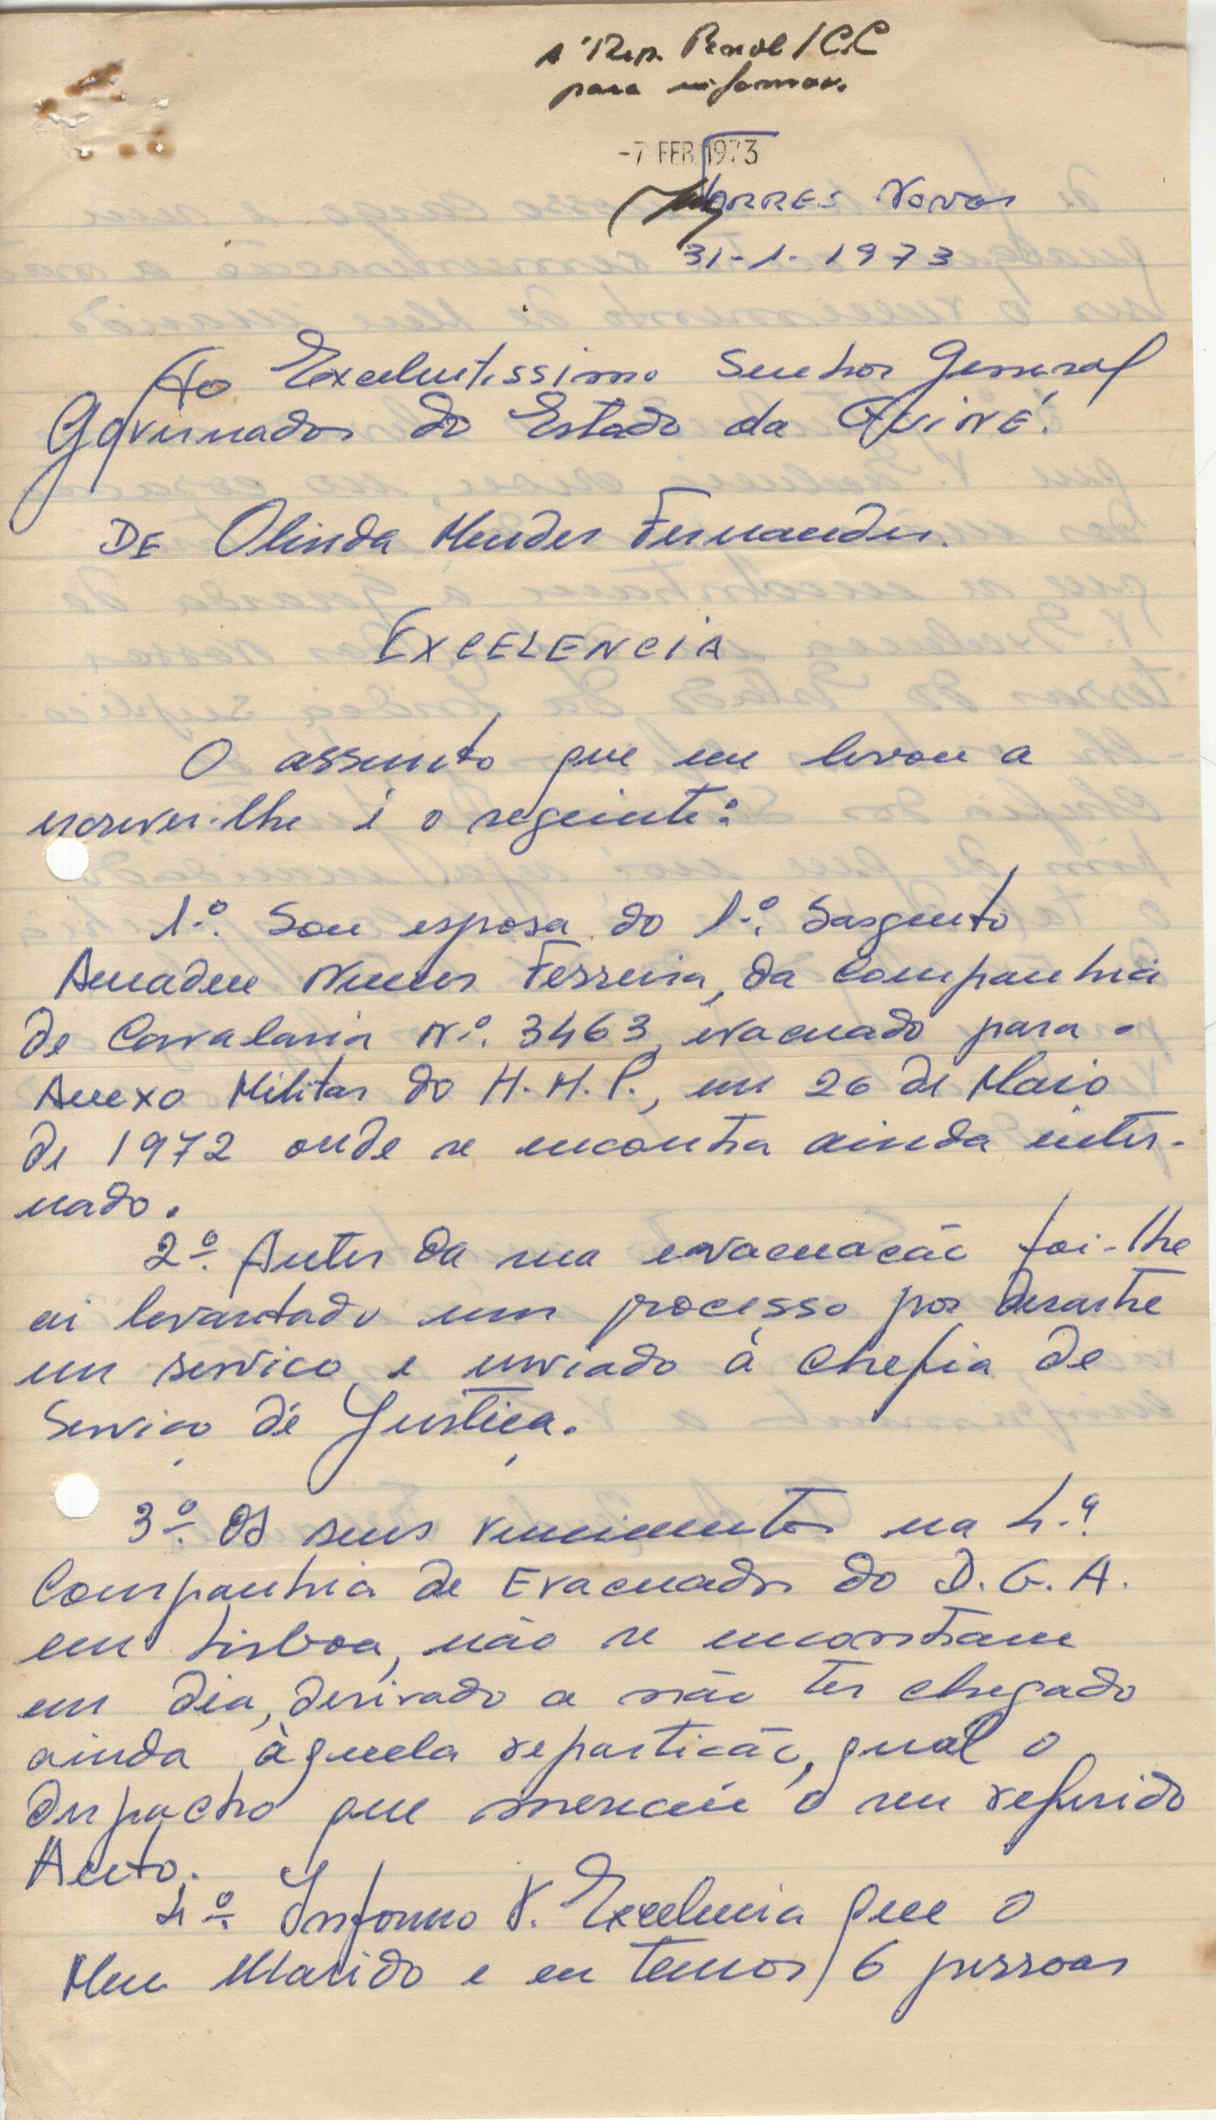 À Rep. Penal / C.C
para informar.
-7 FEB. 1973
TORRES Novas
31-1-1973
Ao Excelentissimo Senhor General
Governador do Estado da GUINÉ.
DE Olinda Mendes Fernandes.
EXCELENCIA
O assunto que me levou a
escrever-lhe é o seguinte:
1.º Sou esposa do 1.º Sargento
Amadeu Nunes Ferreira, da Companhia
de Cavalaria N.º 3463, evacuado para o
Anexo Militar do H.M.P., em 26 de Maio
de 1972 onde se encontra ainda inter-
nado.
2º. Antes da sua evacuação foi-lhe
ai levantado um processo por desastre
em serviço, e enviado à Chefia de
Serviço de Justiça.
3º. Os seus vencimentos na 4.ª
Companhia de Evacuados do D.G.A.
em Lisboa, não se encontram
em dia, derivado a não ter chegado
ainda àquela repartição, qual o
despacho que mereceu o seu referido
Auto.
4º. Informo V. Excelencia que o
Meu Marido e eu temos 6 pessoas